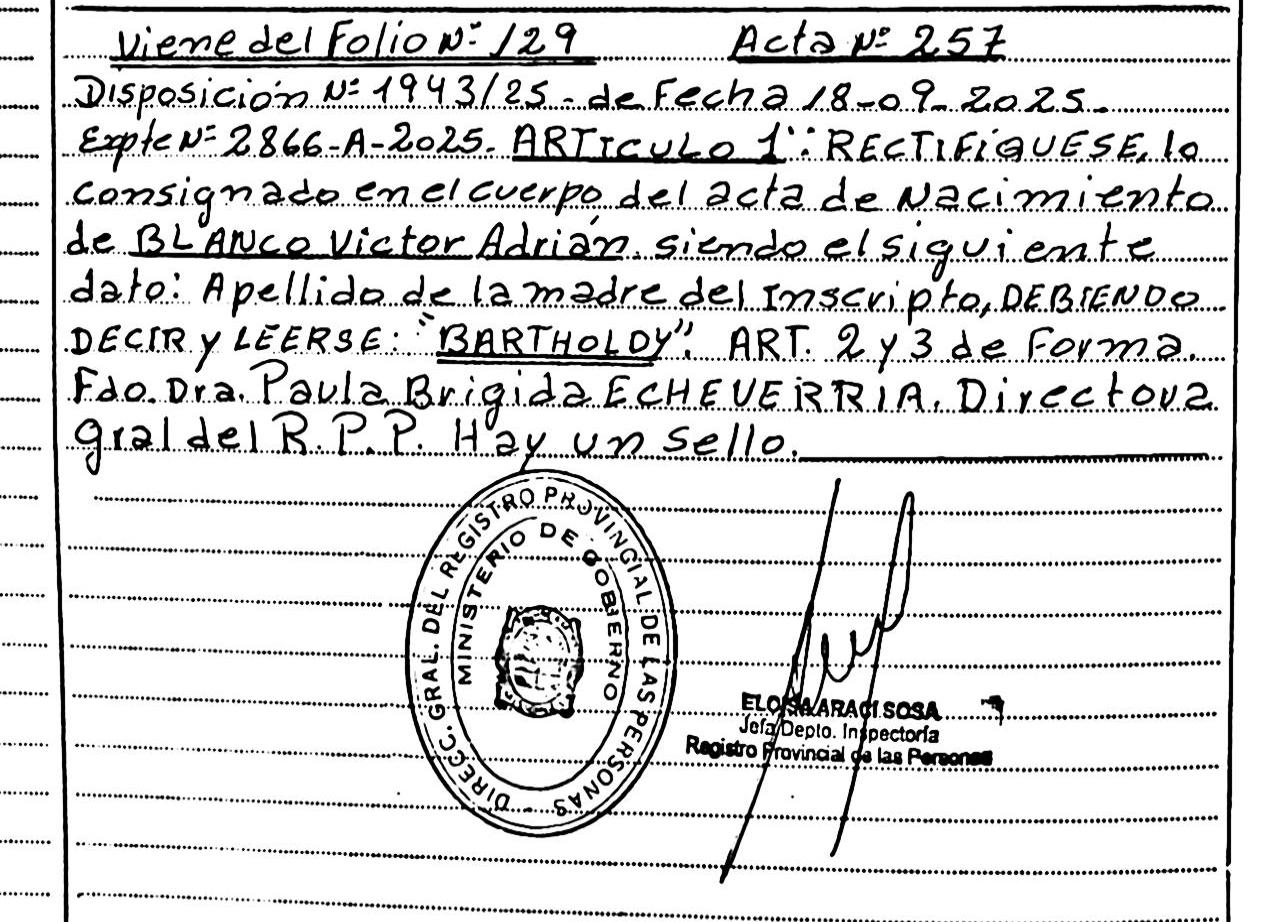 Viene del Folio Nº 129 Acta Nº 257
Disposición Nº 1943/25 - de Fecha 18-09-2025.
Expte Nº 2866-A-2025. ARTICULO 1º: RECTIFIQUESE, lo
consignado en el cuerpo del acta de Nacimiento
de BLANCO Victor Adrián. siendo el siguiente
dato: Apellido de la madre del Inscripto, DEBIENDO
DECIR y LEERSE: "BARTHOLDY". ART. 2 y 3 de Forma.
Fdo. Dra. Paula Brigida ECHEVERRIA. Directora
gral del R.P.P. Hay un sello.
DIRECC. GRAL. DEL REGISTRO PROVINCIAL DE LAS PERSONAS -
MINISTERIO DE GOBIERNO
ELOISA ARACI SOSA
Jefa Depto. Inspectoría
Registro Provincial de las Personas